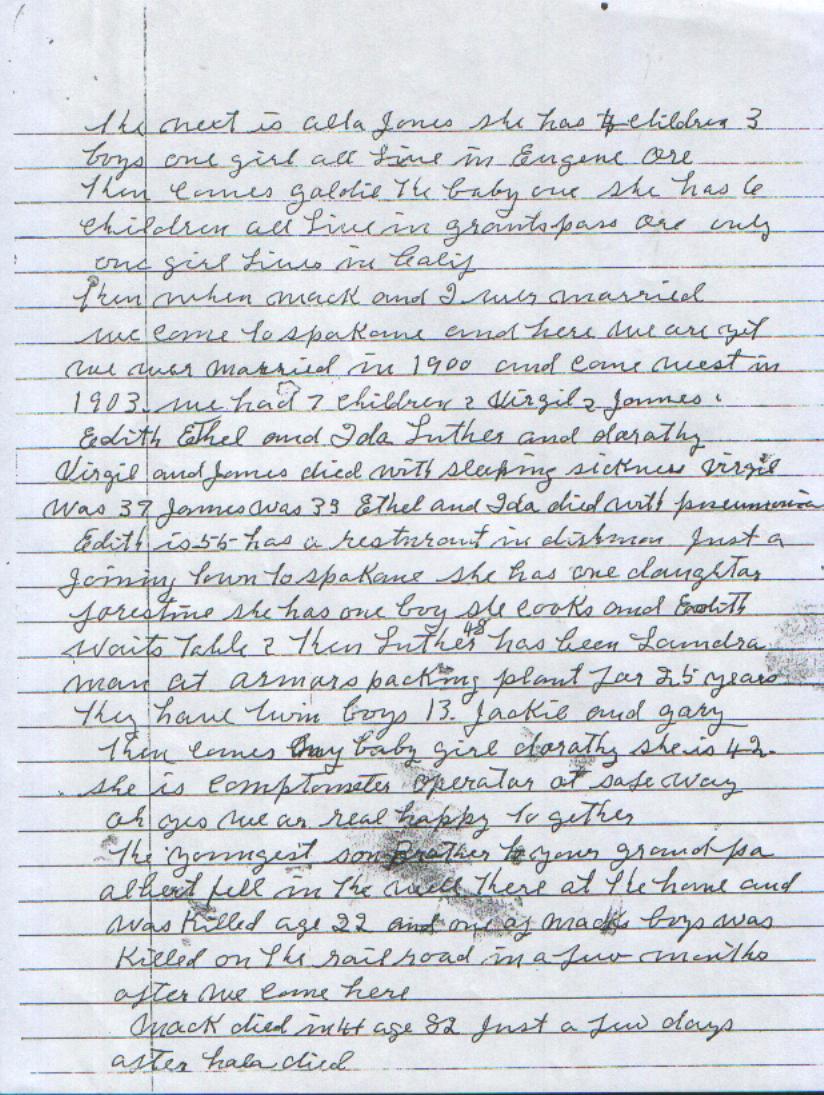 the next is alla Jones she has 4 children 3
boys one girl all live in Eugene Ore
then comes goldie the baby one she has 6
children all live in grantspass Ore only
one girl lives in Calif
Then when mack and I wer married
we come to spokane and here we are yet
we wer married in 1900 and come west in
1903. we had 7 children 2 Virgil 2 James.
Edith Ethel and Ida Luther and dorathy
Virgil and James died with sleeping sickness virgil
was 37 James was 39 Ethel and Ida died with pneumonia
Edith is 55 has a resturant in dishman Just a
Joining town to spokane she has one daughtar
forestine she has one boy she cooks and Eodith
waits table 2 Then Luther 48 has been Laundra
man at armars packing plant for 25 years
They have twin boys 13. Jackie and gary
then comes my baby girl dorathy she is 42.
she is comptometer operator at safe way
oh yes we ar real happy to gether
the youngest son Brother to your grand pa
albert fell in the well there at the home and
was killed age 22 and one of macks boys was
killed on the rail road in a few months
after we come here
mack died in 44 age 82 Just a few days
after hala died